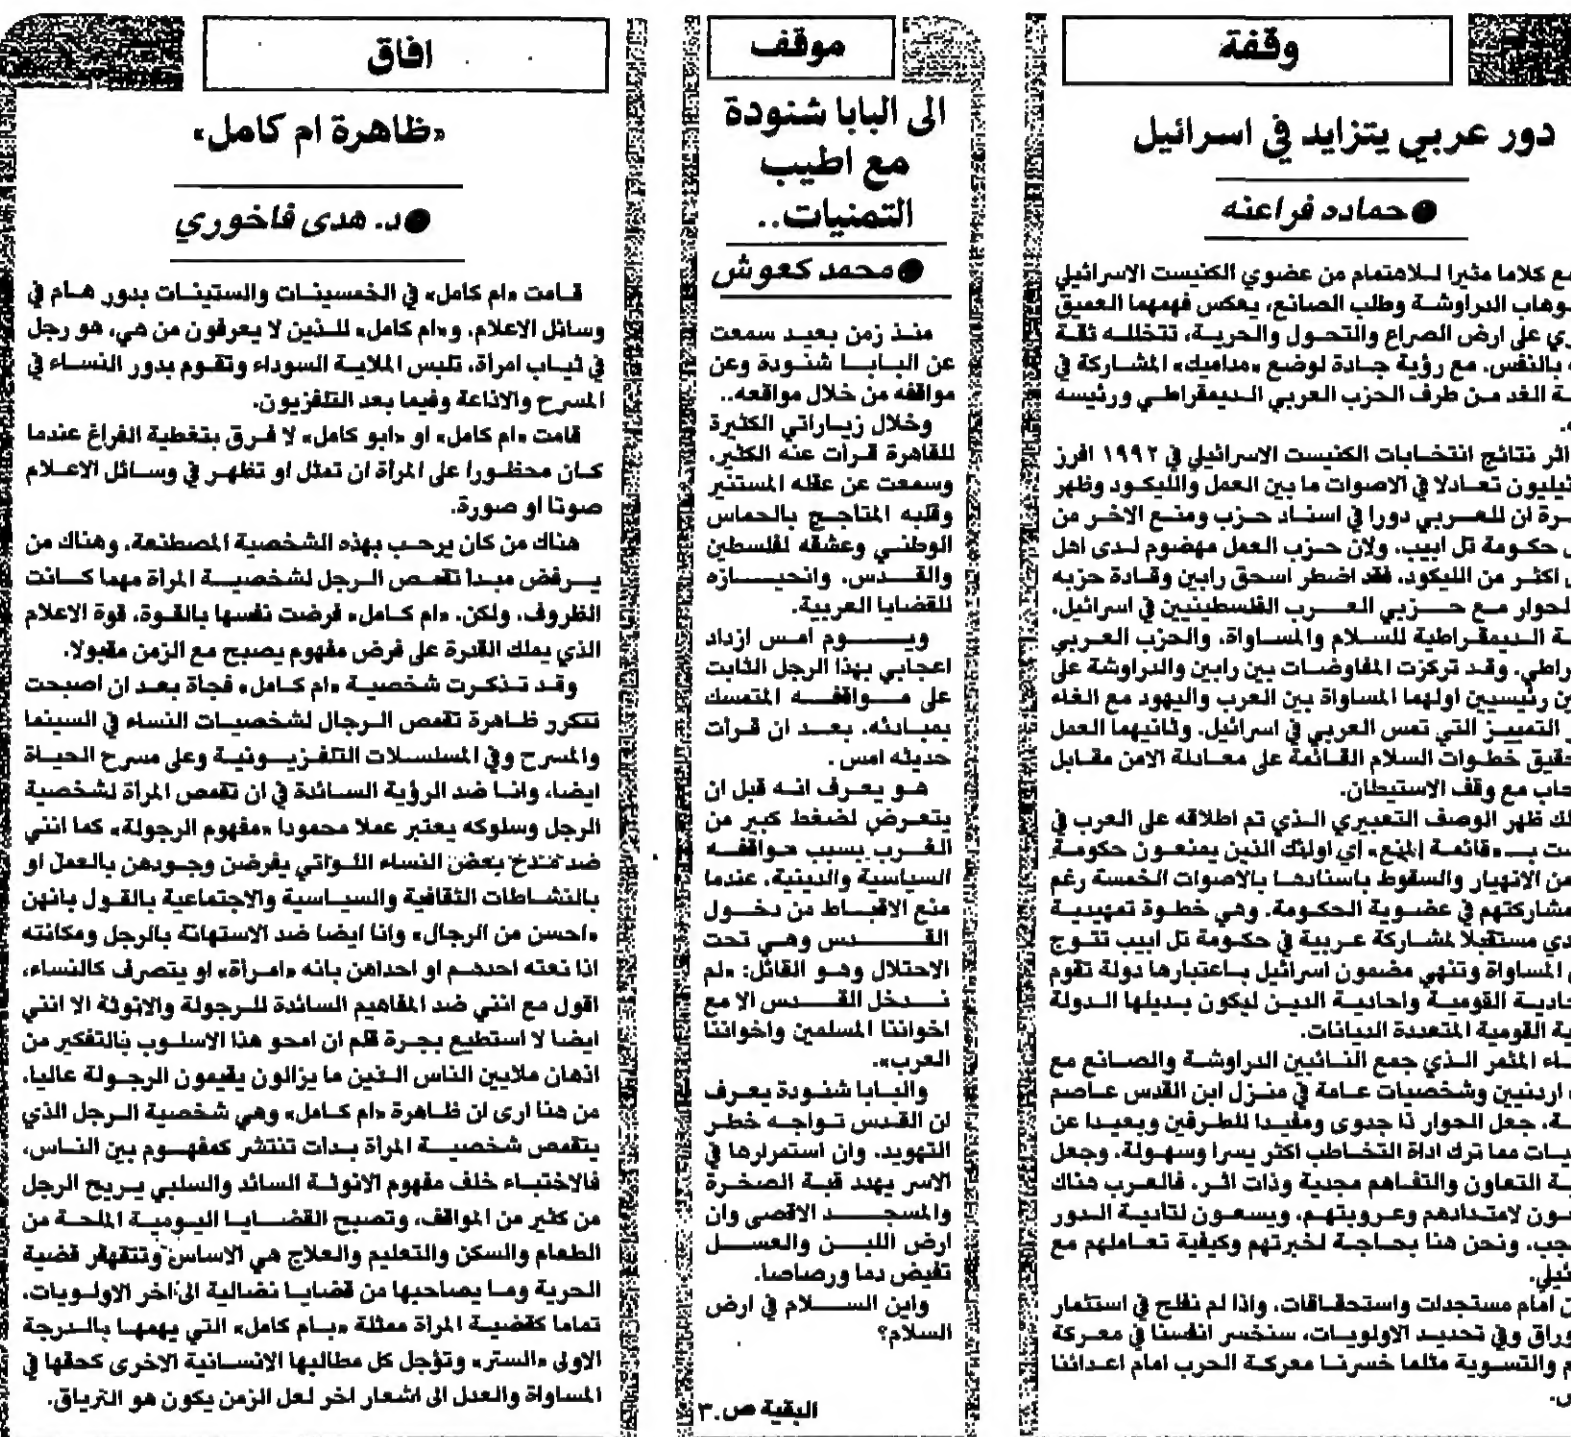 وقفة
دور عربي يتزايد في اسرائيل
●حماده فراعنه
مع كلاما مثيرا للاهتمام من عضوي الكنيست الاسرائيلي
وهاب الدراوشة وطلب الصانع، يعكس فهمهما العميق
ري على ارض الصراع والتحول والحرية، تتخلله ثقة
بالنفس. مع رؤية جادة لوضع «مداميك» المشاركة في
ـة الغد من طرف الحزب العربي الديمقراطي ورئيسه
اثر نتائج انتخابات الكنيست الاسرائيلي في ١٩٩٢ افرز
ئيليون تعادلا في الاصوات ما بين العمل والليكود وظهر
ـرة ان للعربي دورا في اسناد حزب ومنع الاخر من
حكومة تل ابيب. ولان حزب العمل مهضوم لدى اهل
اكثر من الليكود، فقد اضطر اسحق رابين وقادة حزبه
لحوار مع حزبي العرب الفلسطينيين في اسرائيل.
ـة الديمقراطية للسلام والمساواة، والحزب العربي
راطي. وقد تركزت المفاوضات بين رابين والدراوشة على
ين رئيسيين اولهما المساواة بين العرب واليهود مع الغاء
التمييز التي تمس العربي في اسرائيل. وثانيهما العمل
حقيق خطوات السلام القائمة على معادلة الامن مقابل
حاب مع وقف الاستيطان.
لك ظهر الوصف التعبيري الذي تم اطلاقه على العرب في
ست بـ «قائمة المنع» اي اولئك الذين يمنعون حكومة
من الانهيار والسقوط باسنادها بالاصوات الخمسة رغم
مشاركتهم في عضوية الحكومة. وهي خطوة تمهيدية
دي مستقبلا لمشاركة عربية في حكومة تل ابيب تتوج
المساواة وتنهي مضمون اسرائيل باعتبارها دولة تقوم
حادية القومية واحادية الدين ليكون بديلها الدولة
ية القومية المتعددة الديانات.
ـاء المثمر الذي جمع النائبين الدراوشة والصانع مع
اردنيين وشخصيات عامة في منزل ابن القدس عاصم
ـة، جعل الحوار ذا جدوى ومفيدا للطرفين وبعيدا عن
يات مما ترك اداة التخاطب اكثر يسرا وسهولة. وجعل
ـة التعاون والتفاهم مجدية وذات اثر. فالعرب هناك
ـون لامتدادهم وعروبتهم، ويسعون لتادية الدور
جب. ونحن هنا بحاجة لخبرتهم وكيفية تعاملهم مع
ئيلي.
ن امام مستجدات واستحقاقات، واذا لم نفلح في استثمار
وراق وفي تحديد الاولويات، سنخسر انفسنا في معركة
م والتسوية مثلما خسرنا معركة الحرب امام اعدائنا
موقف
الى البابا شنودة
مع اطيب
التمنيات..
●محمد كعوش
منذ زمن بعيد سمعت
عن البابا شنودة وعن
مواقفه من خلال مواقعه..
وخلال زياراتي الكثيرة
للقاهرة قرات عنه الكثير،
وسمعت عن عقله المستنير
وقلبه المتاجج بالحماس
الوطني وعشقه لفلسطين
والقدس، وانحيازه
للقضايا العربية.
ويوم امس ازداد
اعجابي بهذا الرجل الثابت
على مواقفه المتمسك
بمبادئه، بعد ان قرات
حديثه امس.
هو يعرف انه قبل ان
يتعرض لضغط كبير من
الغرب بسبب مواقفه
السياسية والدينية، عندما
منع الاقباط من دخول
القدس وهي تحت
الاحتلال وهو القائل: «لم
ندخل القدس الا مع
اخواننا المسلمين واخواننا
العرب».
والبابا شنودة يعرف
ان القدس تواجه خطر
التهويد، وان استمرارها في
الاسر يهدد قبة الصخرة
والمسجد الاقصى وان
ارض اللبن والعسل
تفيض دما ورصاصا.
واين السلام في ارض
السلام؟
البقية ص.٣
افاق
«ظاهرة ام كامل»
●د. هدى فاخوري
قامت «ام كامل» في الخمسينات والستينات بدور هام في
وسائل الاعلام. و«ام كامل» للذين لا يعرفون من هي، هو رجل
في ثياب امرأة، تلبس الملاية السوداء وتقوم بدور النساء في
المسرح والاذاعة وفيما بعد التلفزيون.
قامت «ام كامل» او «ابو كامل» لا فرق بتغطية الفراغ عندما
كان محظورا على المرأة ان تمثل او تظهر في وسائل الاعلام
صوتا او صورة.
هناك من كان يرحب بهذه الشخصية المصطنعة، وهناك من
يرفض مبدا تقمص الرجل لشخصية المرأة مهما كانت
الظروف. ولكن، «ام كامل» فرضت نفسها بالقوة، قوة الاعلام
الذي يملك القدرة على فرض مفهوم يصبح مع الزمن مقبولا.
وقد تذكرت شخصية «ام كامل» فجأة بعد ان اصبحت
تتكرر ظاهرة تقمص الرجال لشخصيات النساء في السينما
والمسرح وفي المسلسلات التلفزيونية وعلى مسرح الحياة
ايضا، وانا ضد الرؤية السائدة في ان تقمص المرأة لشخصية
الرجل وسلوكه يعتبر عملا محمودا «مفهوم الرجولة» كما انني
ضد مدح بعض النساء اللواتي يفرضن وجودهن بالعمل او
بالنشاطات الثقافية والسياسية والاجتماعية بالقول بانهن
«احسن من الرجال» وانا ايضا ضد الاستهانة بالرجل ومكانته
اذا نعته احدهم او احداهن بانه «امرأة» او يتصرف كالنساء،
اقول مع انني ضد المفاهيم السائدة للرجولة والانوثة الا انني
ايضا لا استطيع بجرة قلم ان امحو هذا الاسلوب بالتفكير من
اذهان ملايين الناس الذين ما يزالون يقيمون الرجولة عاليا.
من هنا ارى ان ظاهرة «ام كامل» وهي شخصية الرجل الذي
يتقمص شخصية المرأة بدات تنتشر كمفهوم بين الناس،
فالاختباء خلف مفهوم الانوثة السائد والسلبي يريح الرجل
من كثير من المواقف، وتصبح القضايا اليومية الملحة من
الطعام والسكن والتعليم والعلاج هي الاساس وتتقهقر قضية
الحرية وما يصاحبها من قضايا نضالية الى اخر الاولويات.
تماما كقضية المرأة ممثلة «بام كامل» التي يهمها بالدرجة
الاولى «الستر» وتؤجل كل مطالبها الانسانية الاخرى كحقها في
المساواة والعدل الى اشعار اخر لعل الزمن يكون هو الترياق.